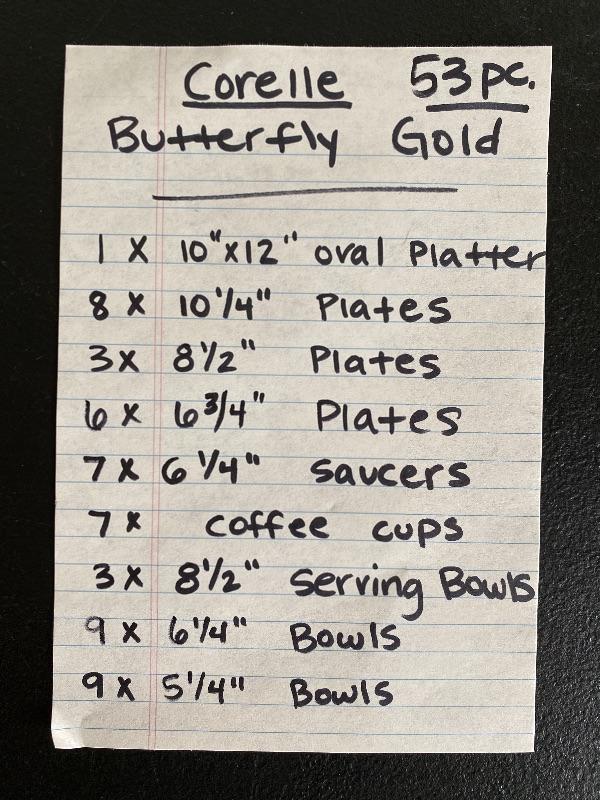 Corelle 53 pc.
Butterfly Gold
1 x 10"x12" oval Platter
8 x 10 1/4" Plates
3 x 8 1/2" Plates
6 x 6 3/4" Plates
7 x 6 1/4" saucers
7 x coffee cups
3 x 8 1/2" serving Bowls
9 x 6 1/4" Bowls
9 x 5 1/4" Bowls